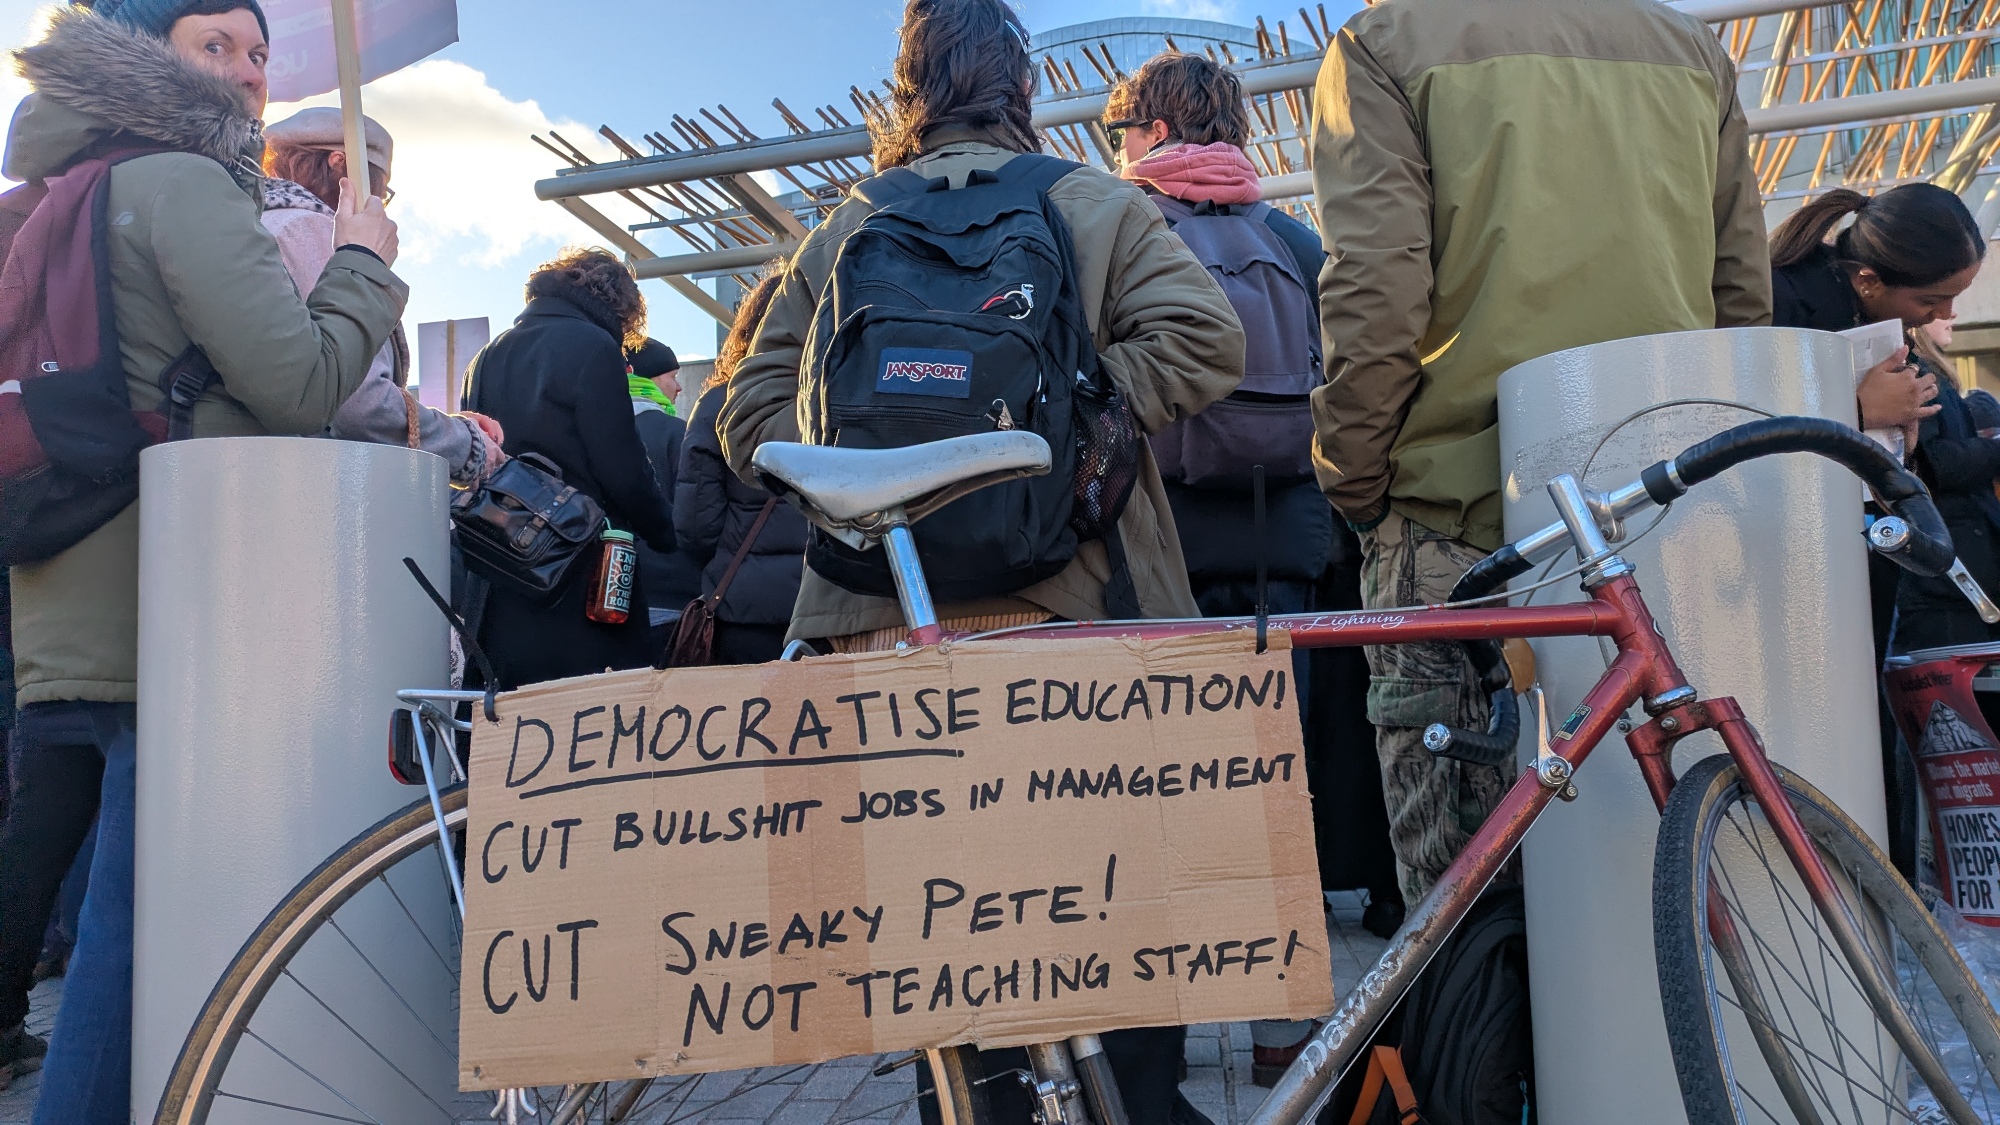 JANSPORT
END
OF
THE
ROAD
Lightning
DEMOCRATISE EDUCATION!
CUT BULLSHIT JOBS IN MANAGEMENT
CUT SNEAKY PETE!
NOT TEACHING STAFF!
Dawes
HOMES
FOR